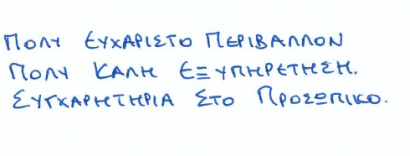 ΠΟΛΥ ΕΥΧΑΡΙΣΤΟ ΠΕΡΙΒΑΛΛΟΝ
ΠΟΛΥ ΚΑΛΗ ΕΞΥΠΗΡΕΤΗΣΗ.
ΣΥΓΧΑΡΗΤΗΡΙΑ ΣΤΟ ΠΡΟΣΩΠΙΚΟ.